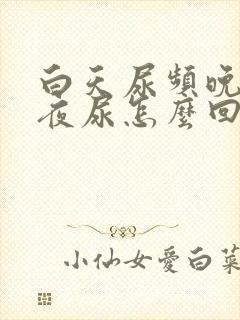 白天尿頻晚
夜尿怎麼回
小仙女愛白菜